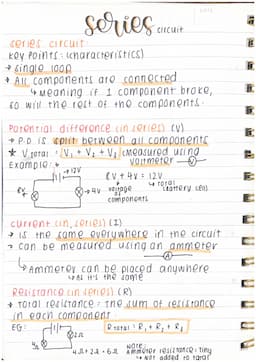 series circuit
series circuit
key points: (characteristics)
→ single loop
→ All components are connected
↳ meaning if 1 component broke,
so will the rest of the components.
Potential difference (in series) (V)
→ P.D is split between all components
★ V total : V₁ + V₂ + V₃ (measured using
voltmeter -V-
Example: → 12V
8V
→ 4V
8V + 4V = 12V
↳ voltage of components
↳ total (battery cell)
current (in series) (I)
→ is the same everywhere in the circuit
→ can be measured using an ammeter
-A-
↳ Ammeter can be placed anywhere
↳ as it's the same
Resistance (in series) (R)
→ total resistance: the sum of resistance
in each component.
EG:
R total : R₁ + R₂ + R₃
2Ω
4Ω
4Ω + 2Ω = 6Ω
note:
Ammeter resistance: tiny
↳ not added to total